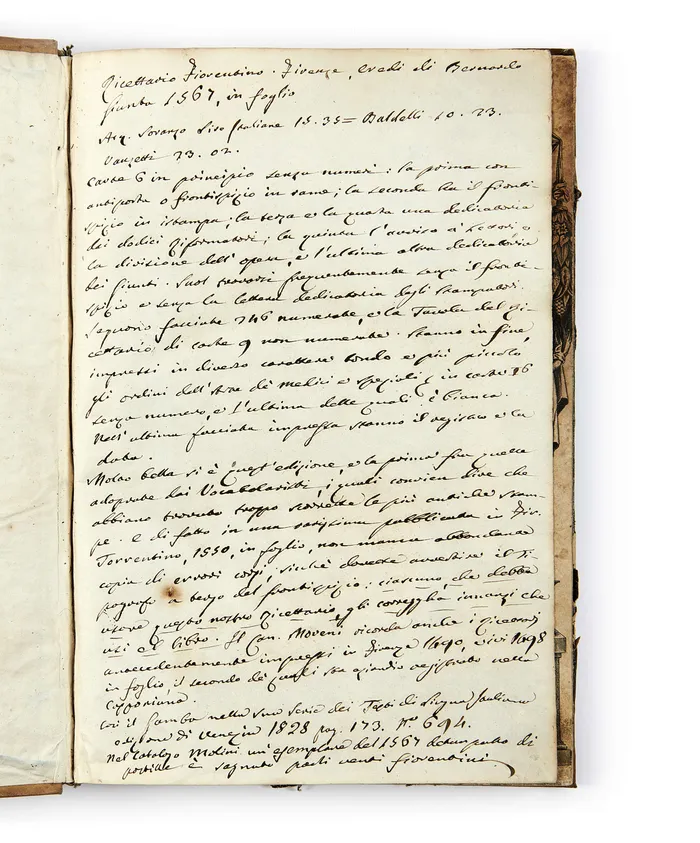 Ricettario Fiorentino. Firenze, eredi di Bernardo
Giunta 1567, in foglio
Acq. Soranzo Lire Italiane 15.35 = Baldelli 10. 23.
Vanzetti 23. 02.
Carte 6 in principio senza numeri: la prima con
antiporta o frontispizio in rame; la seconda ha il fronti-
spizio in istampa; la terza e la quarta una dedicatoria
dei dodici Riformatori; la quinta l'avviso a' Lettori e
la divisione dell'opera, e l'ultima altra dedicatoria
dei Giunti. Suol trovarsi frequentemente senza il fronti-
spizio e senza la lettera dedicatoria degli stampatori.
Seguono facciate 246 numerate, e la Tavola del Ri-
cettario di carte 9 non numerate. Stanno in fine,
impressi in diverso carattere tondo e più piccolo
gli ordini dell'Arte de' Medici e Speziali in carte 16
senza numero, e l'ultima delle quali è bianca.
Nell'ultima facciata impressa stanno il registro e la
data.
Molto bella si è quest'edizione, e la prima fra quelle
adoprate dai Vocabolaristi, i quali convien dire che
abbiano trovato troppo scorrette le più antiche stam-
pe. E di fatto in una rarissima pubblicata in Fir.
Torrentino, 1550, in foglio, non manca abbondante
copia di errori corsi, sicchè dovette avvertire il Ti-
pografo a tergo del frontispizio: ciascuno, che debba
usare questo nostro Ricettario, gli corregghi innanzi che
usi el libro. Il Can. Moreni ricorda anche i Ricettarj
antecedentemente impressi in Firenze 1490, ivi 1498
in foglio, il secondo de' quali sta eziandio registrato nella
Capponiana.
Così il Gamba nella sua Serie dei Testi di Lingua Italiana
edizione di Venezia 1828 pag. 173. N.º 694.
Nel Catalogo Molini un esemplare del 1567 deturpato di
postille è segnato paoli venti fiorentini